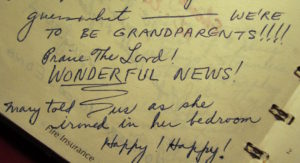 guess what —— WE'RE
TO BE GRANDPARENTS!!!!
Praise The Lord!
WONDERFUL NEWS!
Mary told us as she
ironed in her bedroom
Happy! Happy!
Fire Insurance